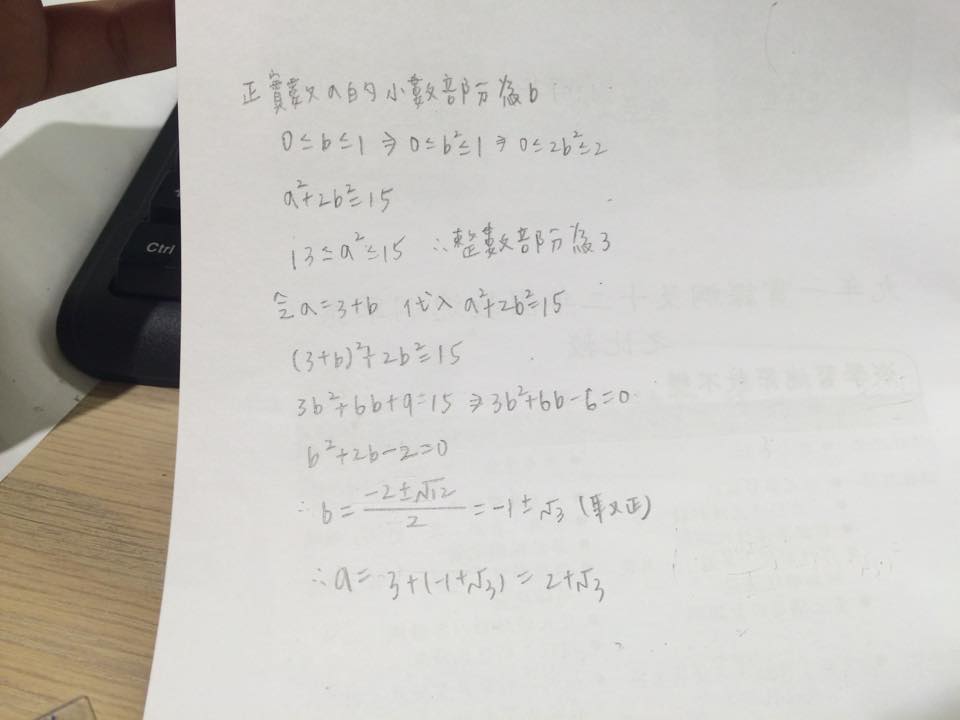 正實數a的小數部分為b
0≤b≤1 ⇒ 0≤b²≤1 ⇒ 0≤2b²≤2
a²+2b²=15
13≤a²≤15 ∴整數部分為3
令a=3+b 代入 a²+2b²=15
(3+b)²+2b²=15
3b²+6b+9=15 ⇒ 3b²+6b-6=0
b²+2b-2=0
∴ b = (-2±√12)/2 = -1±√3 (取正)
∴ a = 3+(-1+√3) = 2+√3
Ctrl